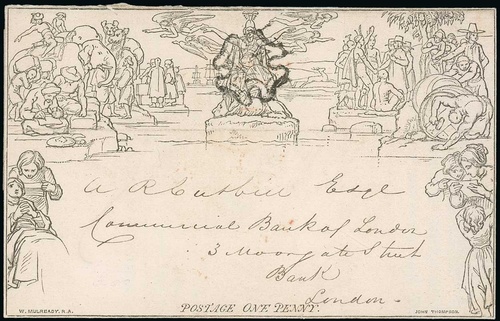 A R Cutbill Esqe
Commercial Bank of London
3 Moorgate Street
Bank
London.
POSTAGE ONE PENNY.
W. MULREADY, R.A.
JOHN THOMPSON.